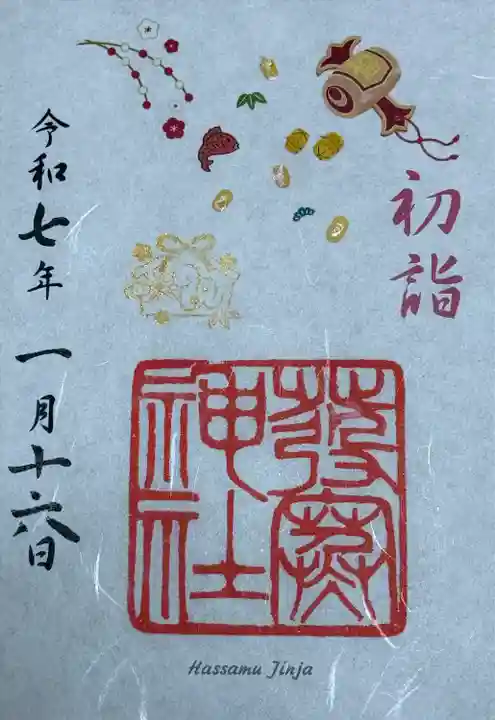 初詣
令和七年 一月十六日
発寒
神社
Hassamu Jinja